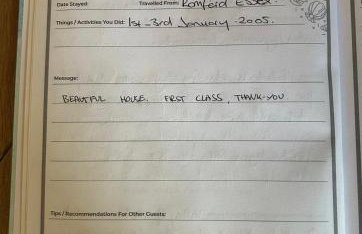 Date Stayed: Travelled From: Romford Essex.
Things / Activities You Did: 1st - 3rd January 2005.
Message:
BEAUTIFUL HOUSE. FRST CLASS, THANK-YOU.
Tips / Recommendations For Other Guests: